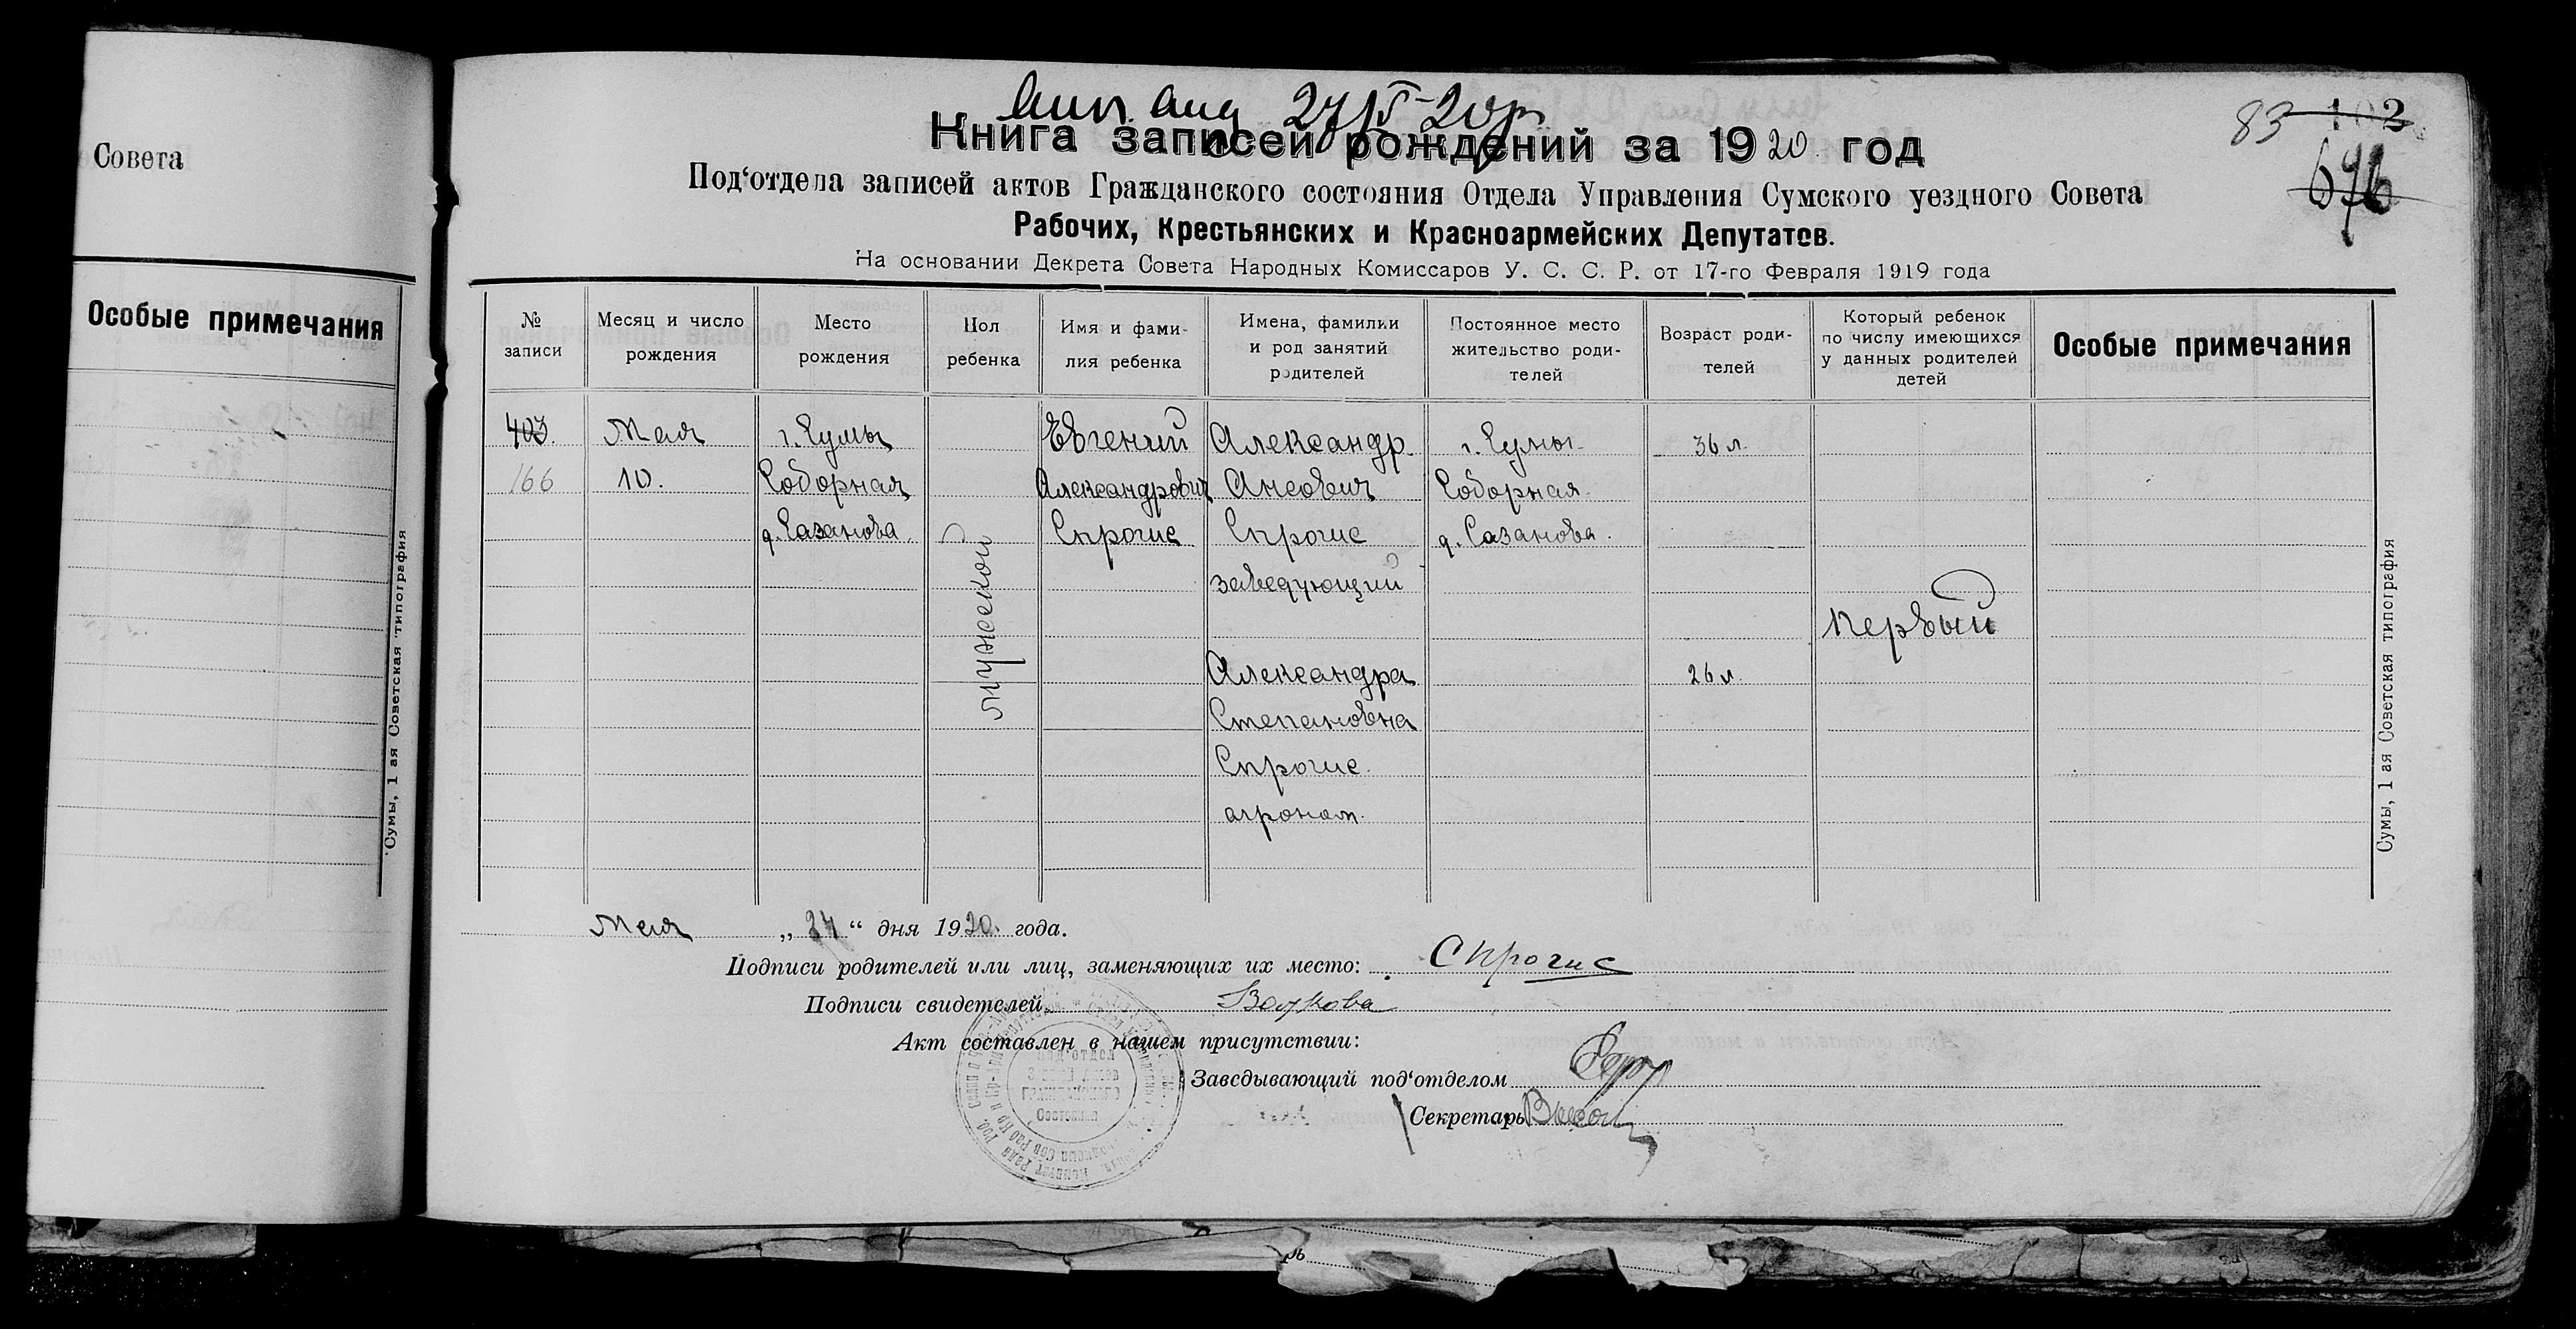 Совета
Особые примечания
Сумы, 1 ая Советская типография
27/V-20 г
83 102
676
Книга записей рождений за 1920 год
Под‘отдела записей актов Гражданского состояния Отдела Управления Сумского уездного Совета
Рабочих, Крестьянских и Красноармейских Депутатов.
На основании Декрета Совета Народных Комиссаров У. С. С. Р. от 17-го Февраля 1919 года
№
записи
Месяц и число
рождения
Место
рождения
Пол
ребенка
Имя и фами-
лия ребенка
Имена, фамилии
и род занятий
родителей
Постоянное место
жительство роди-
телей
Возраст роди-
телей
Который ребенок
по числу имеющихся
у данных родителей
детей
Особые примечания
403.
166
Мая
10.
г. Сумы
Соборная
д. Сазанова
мужеской
Евгений
Александрович
Спрогис
Александр
Ансович
Спрогис
заведующий
Александра
Степановна
Спрогис
агроном.
г. Сумы
Соборная
д. Сазанова.
36 л.
26 л.
Первый
Сумы, 1 ая Советская типография
Мая „24“ дня 1920. года.
Подписи родителей или лиц, заменяющих их место: Спрогис
Подписи свидетелей Волкова
Акт составлен в нашем присутствии:
Завсдывающий под‘отделом
Секретарь
Под‘отдел
Записей Актов
Гражданского
Состояния